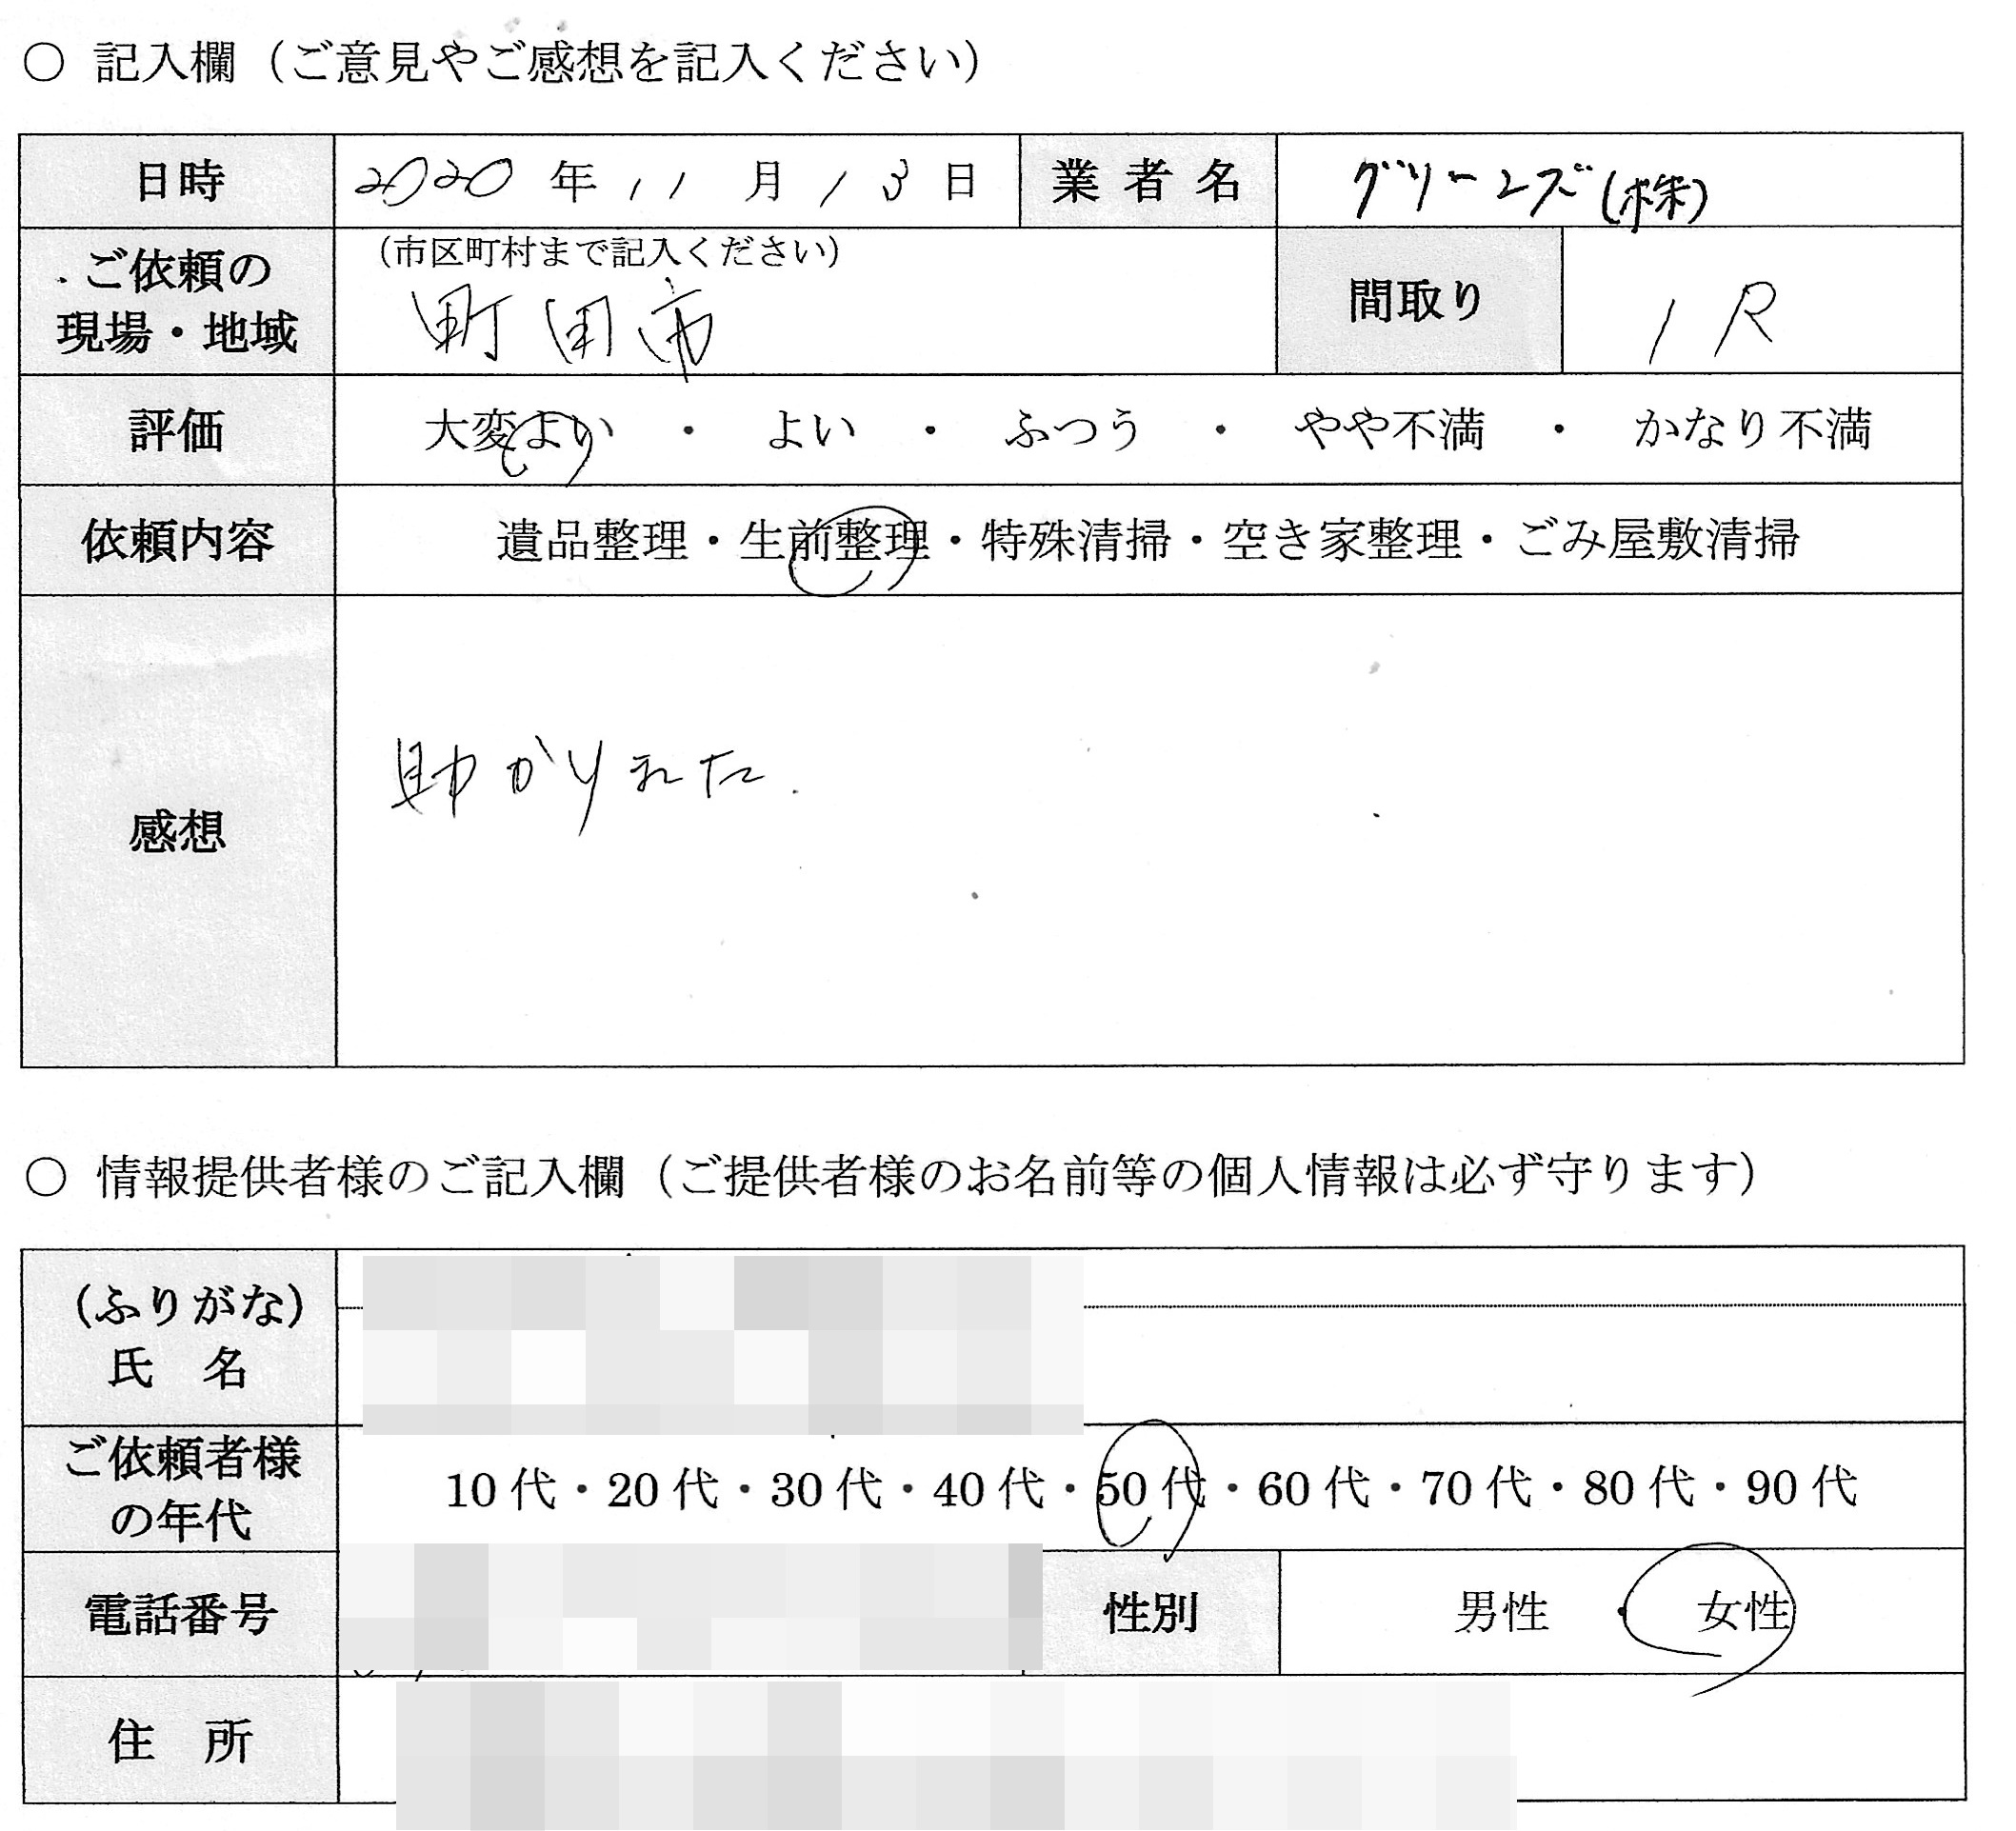 ○ 記入欄（ご意見やご感想を記入ください）
日時 2020 年 11 月 13 日 業者名 グリーンズ(株)
ご依頼の現場・地域 （市区町村まで記入ください） 間取り 1R
町田市
評価 大変よい ・ よい ・ ふつう ・ やや不満 ・ かなり不満
依頼内容 遺品整理・生前整理・特殊清掃・空き家整理・ごみ屋敷清掃
感想 助かりました.
○ 情報提供者様のご記入欄（ご提供者様のお名前等の個人情報は必ず守ります）
（ふりがな）
氏 名
ご依頼者様の年代 10代・20代・30代・40代・50代・60代・70代・80代・90代
電話番号 性別 男性 ・ 女性
住 所